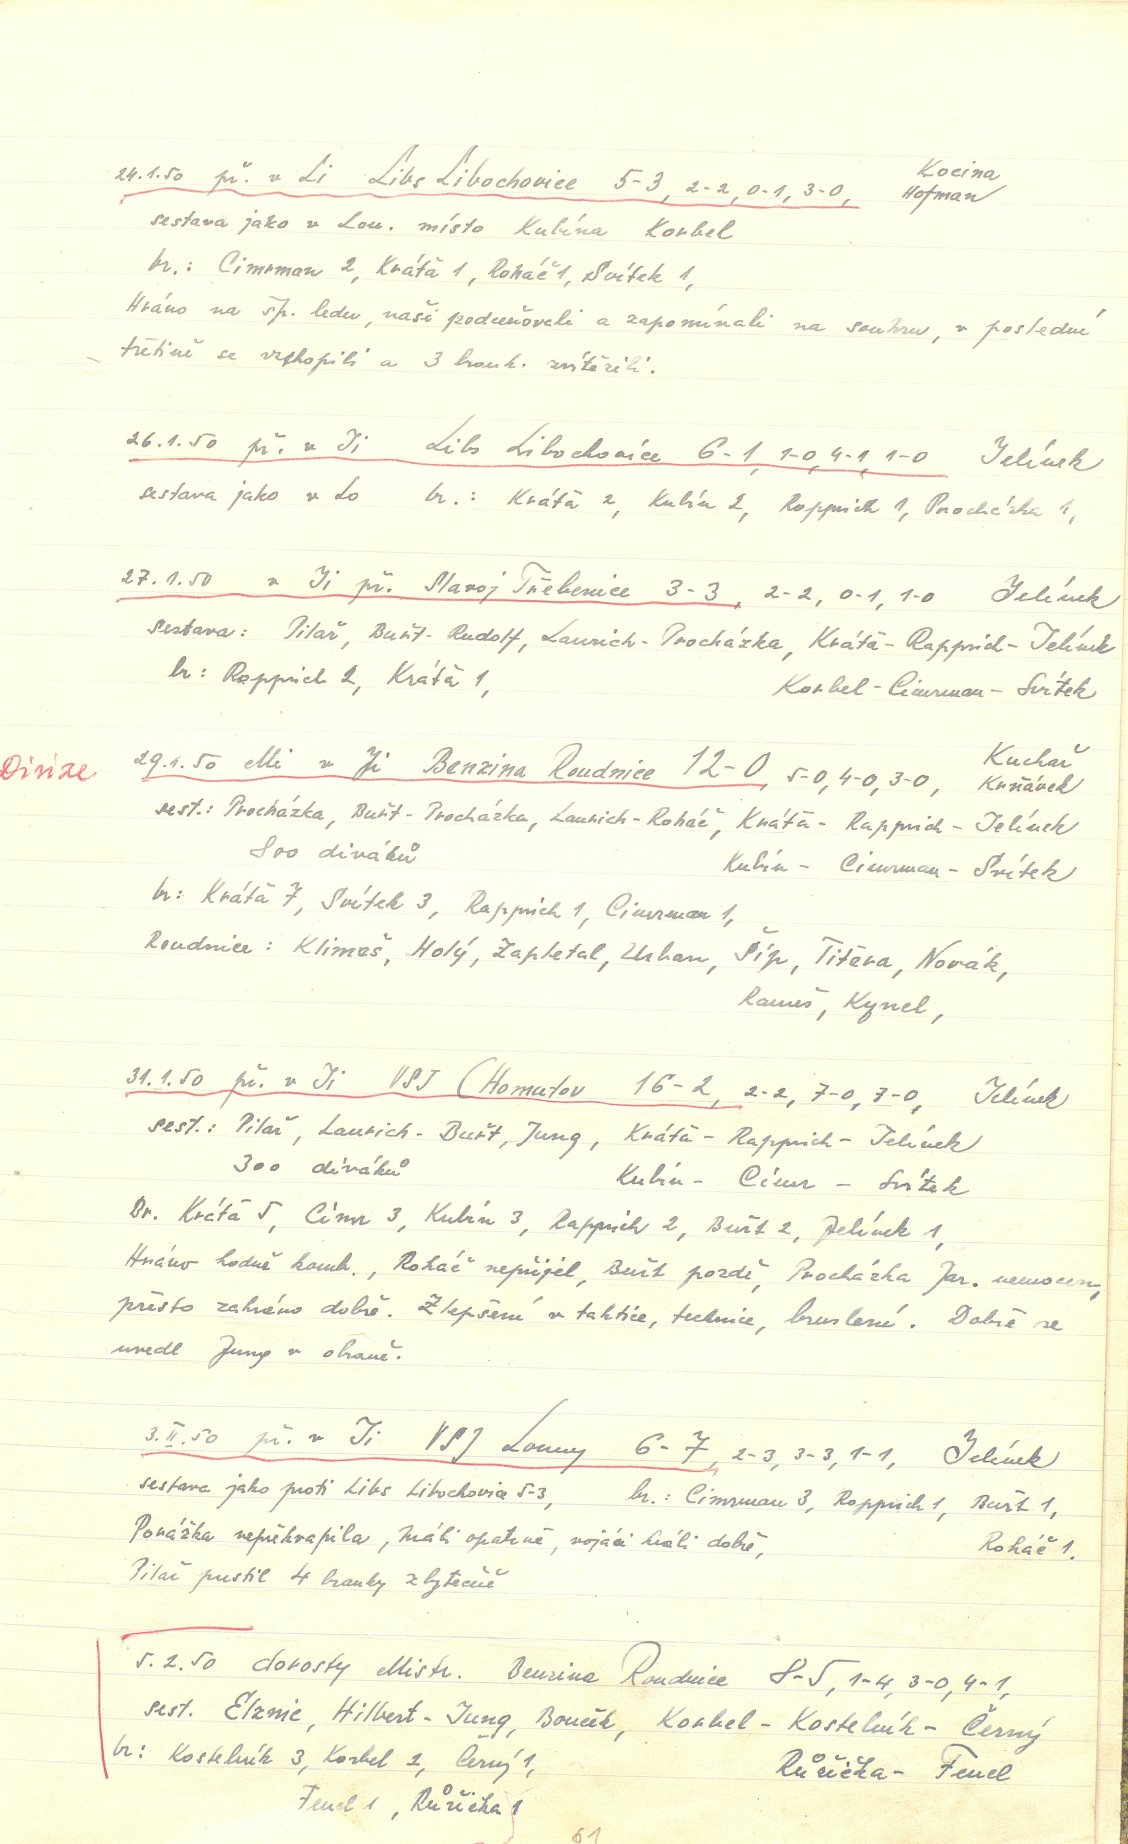 24.1.50 př. v Li Libs Libochovice 5-3, 2-2, 0-1, 3-0, Kocina
Hofman
sestava jako v Lou. místo Kubína Korbel
br.: Cimrman 2, Krátă 1, Roháč 1, Svítek 1,
Hráno na šp. ledu, naši podceňovali a zapomínali na souhru, v poslední
třetině se vzchopili a 3 brank. zvítězili.
26.1.50 př. v Ji Libs Libochovice 6-1, 1-0, 4-1, 1-0 Jelínek
sestava jako v Lo br.: Krátă 2, Kubín 2, Rapprich 1, Procházka 1,
27.1.50 v Ji př. Slavoj Třebenice 3-3, 2-2, 0-1, 1-0 Jelínek
sestava: Pilař, Buřt - Rudolf, Laurich - Procházka, Krátă - Rapprich - Jelínek
br: Rapprich 2, Krátă 1, Korbel - Cimrman - Svítek
Divize 29.1.50 Mi v Ji Benzina Roudnice 12-0, 5-0, 4-0, 3-0, Kuchař
Krňávek
sest.: Procházka, Buřt - Procházka, Laurich - Roháč, Krátă - Rapprich - Jelínek
800 diváků Kubín - Cimrman - Svítek
br: Krátă 7, Svítek 3, Rapprich 1, Cimrman 1,
Roudnice: Klimeš, Holý, Zapletal, Urban, Šíp, Titěra, Novák,
Rameš, Kynel,
31.1.50 př. v Ji VSJ Chomutov 16-2, 2-2, 7-0, 7-0, Jelínek
sest.: Pilař, Laurich - Buřt, Jung, Krátă - Rapprich - Jelínek
300 diváků Kubín - Cimr - Svítek
Br. Krátă 5, Cimr 3, Kubín 3, Rapprich 2, Buřt 2, Jelínek 1,
Hráno hodně komb., Roháč nepřijel, Buřt pozdě, Procházka Jar. nemocen,
přesto zahráno dobře. Zlepšení v taktice, technice, bruslení. Dobře se
uvedl Jung v obraně.
3.II.50 př. v Ji VSJ Louny 6-7, 2-3, 3-3, 1-1, Jelínek
sestava jako proti Libs Libochovice 5-3, br.: Cimrman 3, Rapprich 1, Buřt 1,
Porážka nepřekvapila, hráli opatrně, vojáci hráli dobře, Roháč 1.
Pilař pustil 4 branky zbytečně
5.2.50 dorosty Mistr. Benzina Roudnice 8-5, 1-4, 3-0, 4-1,
sest. Elznic, Hilbert - Jung, Bouček, Korbel - Kostelník - Černý
br: Kostelník 3, Korbel 2, Černý 1, Růžička - Fencl
Fencl 1, Růžička 1
61